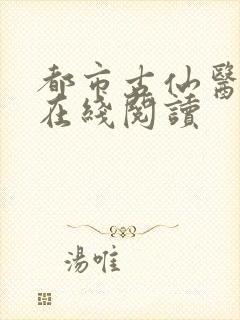 都市古仙醫
在綫閱讀
湯唯